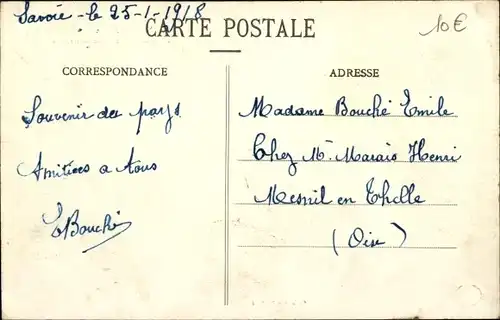 Savoie - le 25-1-1918
CARTE POSTALE
10€
CORRESPONDANCE
Souvenir du pays
Amitiees a tous
EBouché
ADRESSE
Madame Bouché Emile
Chez Mr Marais Henri
Mesnil en Thelle
(Oise)